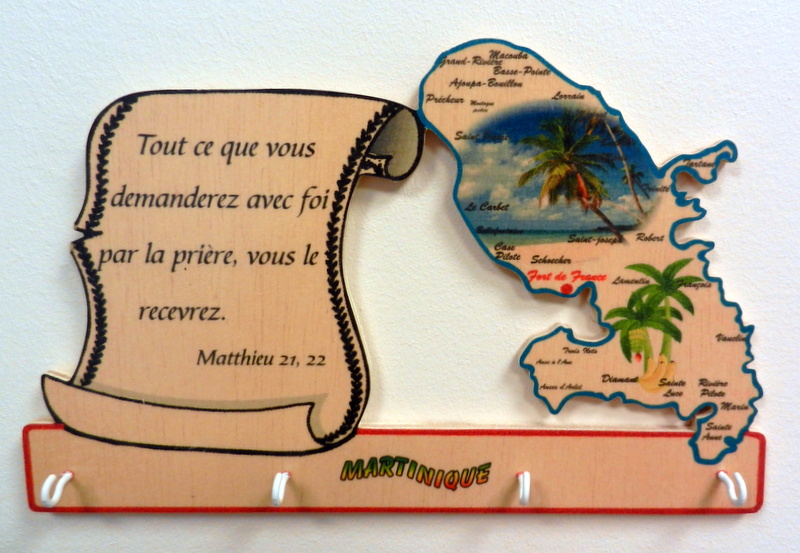 Tout ce que vous
demanderez avec foi
par la prière, vous le
recevrez.
Matthieu 21, 22
Macouba
Grand-Rivière
Basse-Pointe
Ajoupa-Bouillon
Prêcheur
Lorrain
Trinité
Le Carbet
Bellefontaine
Saint-joseph
Robert
Case
Pilote
Schoecher
Fort de France
Lamentin
François
Trois Ilets
Vauclin
Anses d'Arlet
Diamant
Sainte
Luce
Rivière
Pilote
Marin
Sainte
Anne
MARTINIQUE